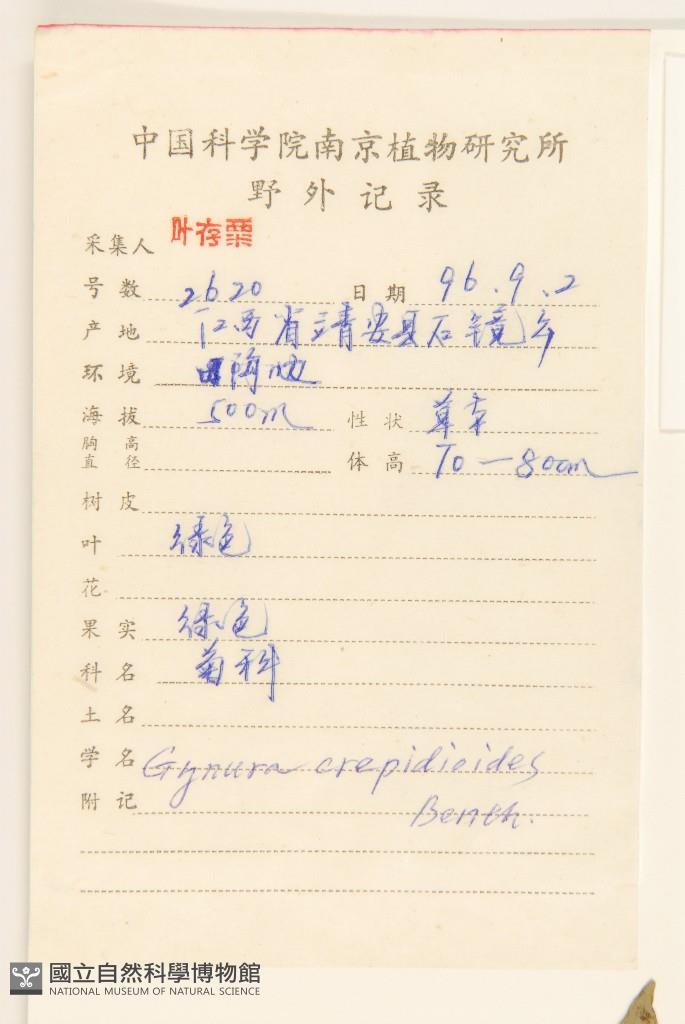 中国科学院南京植物研究所
野外记录
采集人 叶存粟
号数 2620 日期 96.9.2
产地 江西省靖安县石镜乡
环境 阴地
海拔 500m 性状 草本
胸高直径 体高 70—80cm
树皮
叶 绿色
花
果实 绿色
科名 菊科
土名
学名 Gynura crepidioides
附记 Benth.
國立自然科學博物館
NATIONAL MUSEUM OF NATURAL SCIENCE